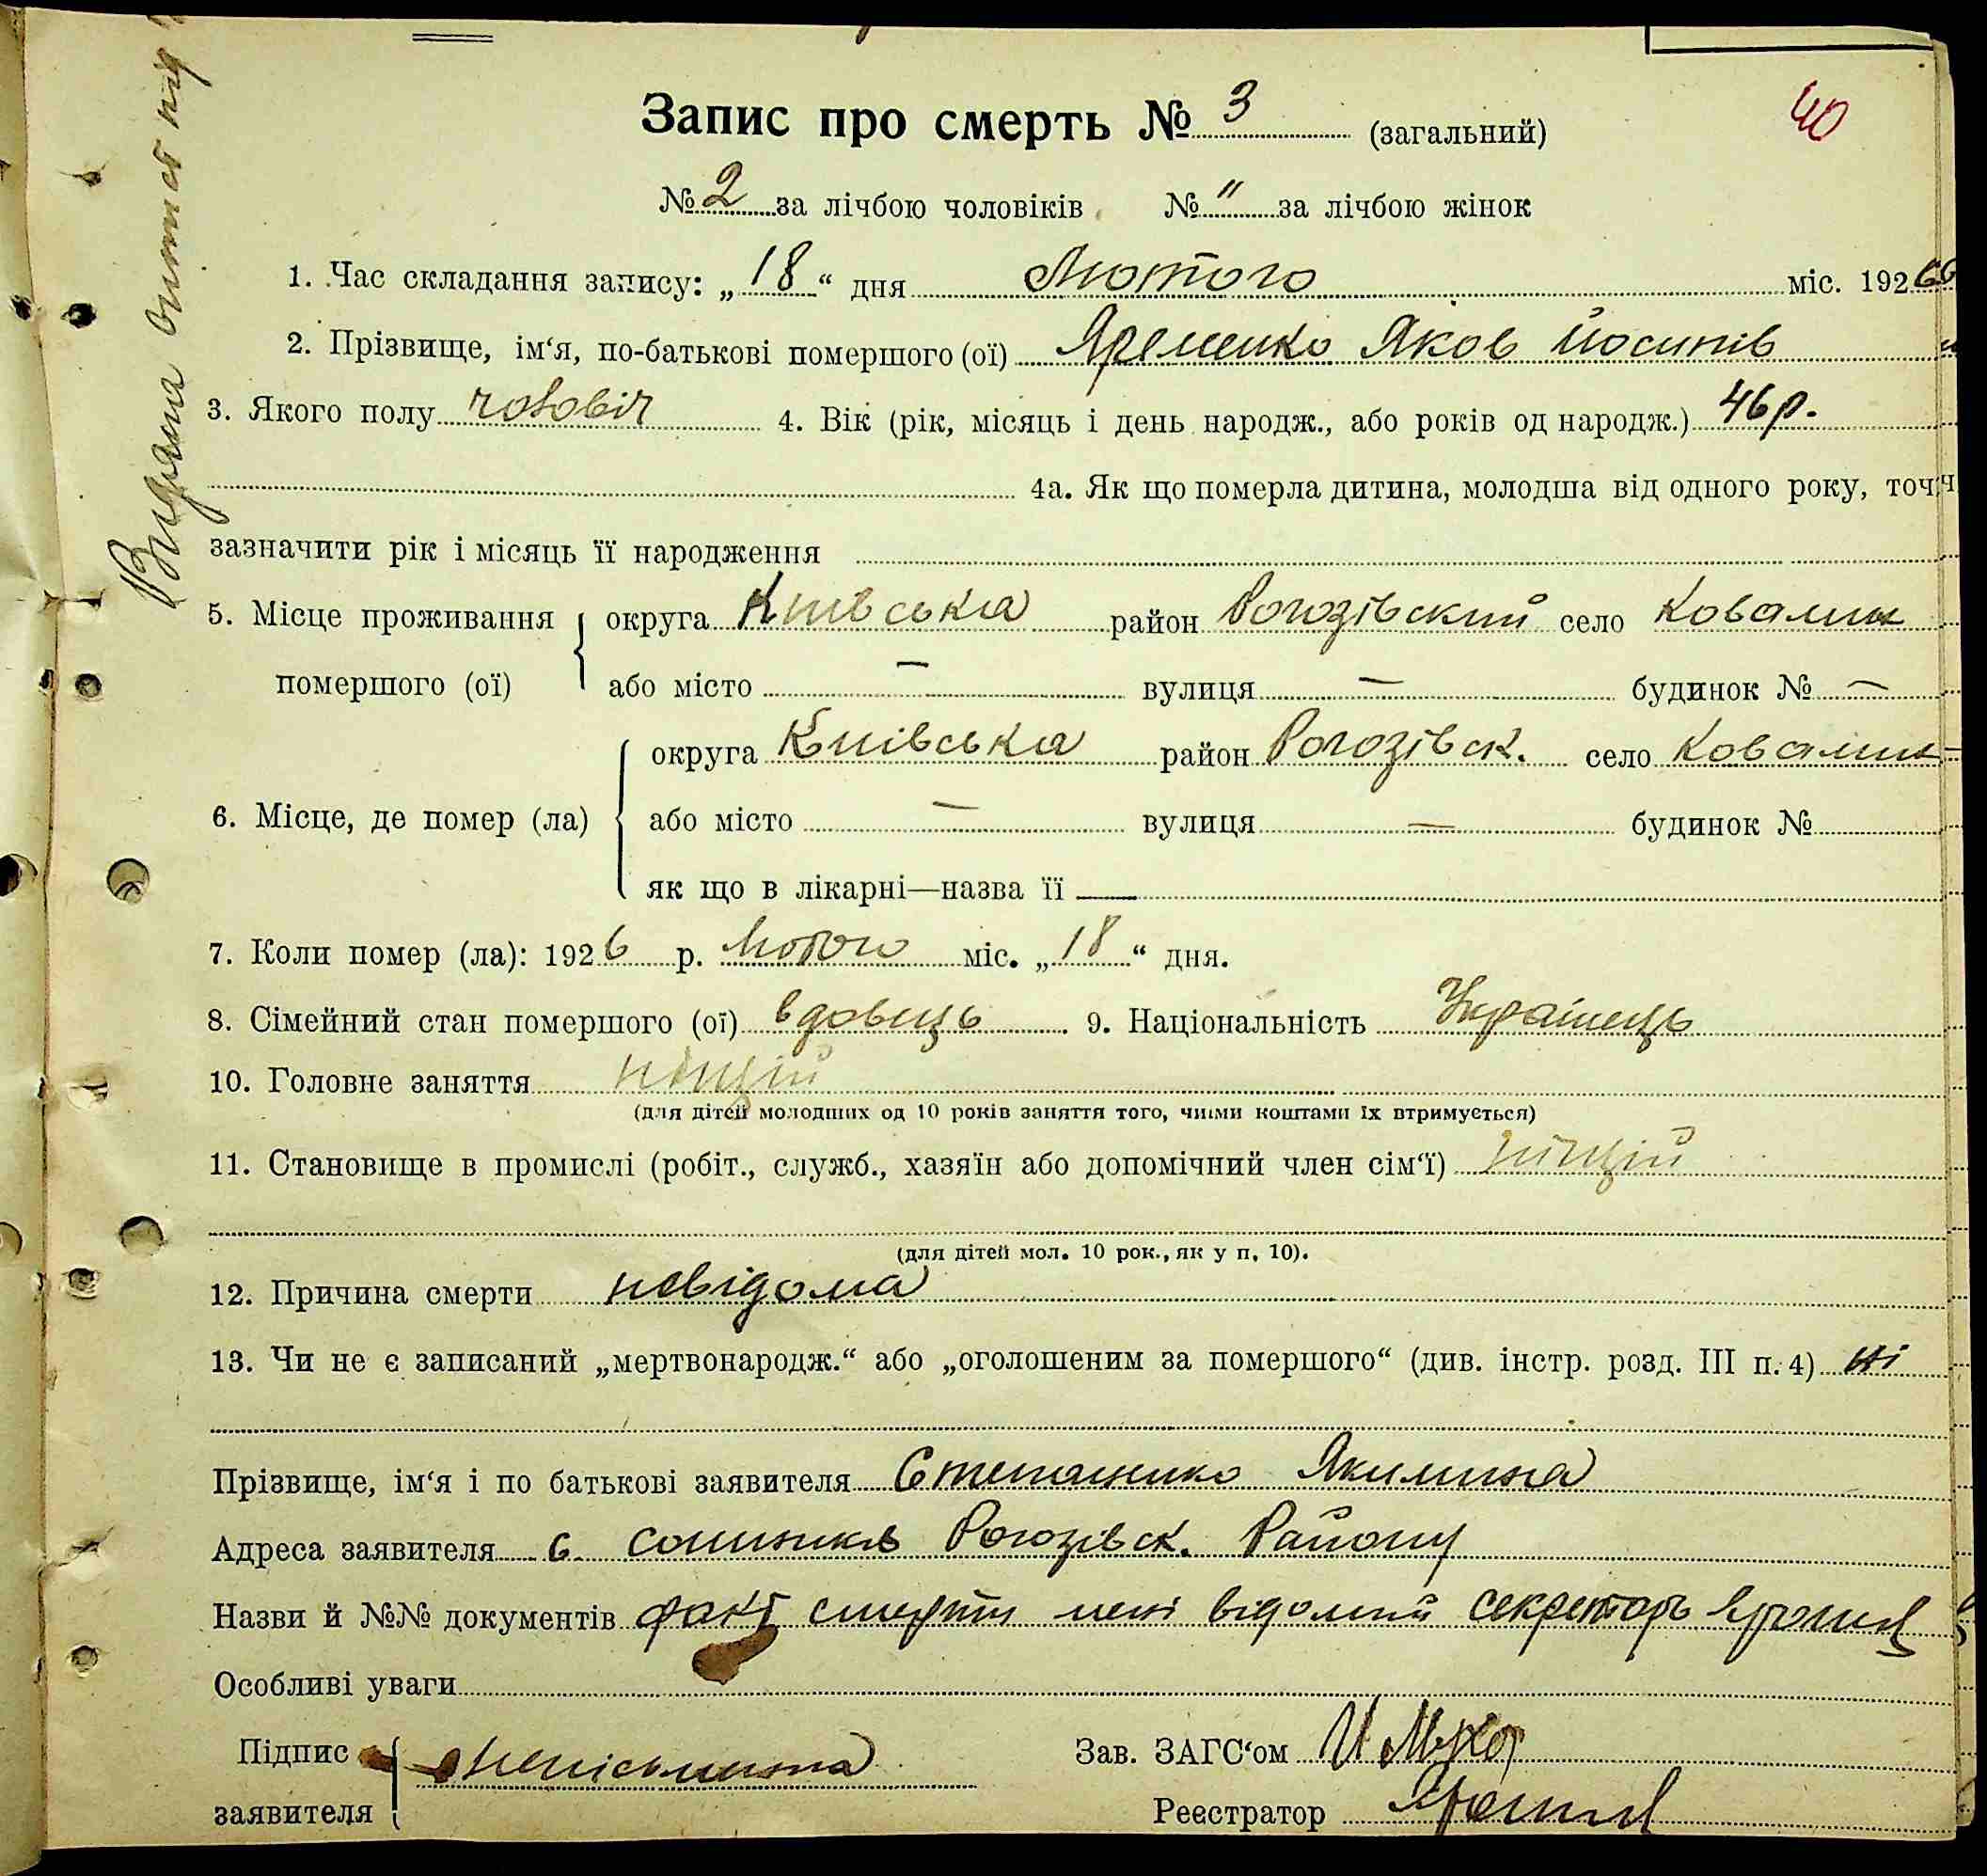 Запис про смерть № 3 (загальний)
40
№ 2 за лічбою чоловіків № " за лічбою жінок
1. Час складання запису: „18“ дня Лютого міс. 1926
2. Прізвище, ім'я, по-батькові помершого (ої) Яременко Яков Йосипів
3. Якого полу чоловіч 4. Вік (рік, місяць і день народж., або років од народж.) 46 р.
4а. Як що померла дитина, молодша від одного року, точ
зазначити рік і місяць її народження
5. Місце проживання помершого (ої) округа Київська район Рогозівский село Ковалин
або місто — вулиця — будинок № —
6. Місце, де помер (ла) округа Київська район Рогозівск. село Ковалин
або місто — вулиця — будинок №
як що в лікарні—назва її —
7. Коли помер (ла): 1926 р. Лютого міс. „18“ дня.
8. Сімейний стан помершого (ої) вдовець 9. Національність Українець
10. Головне заняття ніщій
(для дітей молодших од 10 років заняття того, чиїми коштами їх втримується)
11. Становище в промислі (робіт., служб., хазяїн або допомічний член сім'ї) ніщій
(для дітей мол. 10 рок., як у п. 10).
12. Причина смерти невідома
13. Чи не є записаний „мертвонародж.“ або „оголошеним за помершого“ (див. інстр. розд. III п. 4) ні
Прізвище, ім'я і по батькові заявителя Степаненко Якилина
Адреса заявителя с. Сошників Рогозівск. Району
Назви й №№ документів факт смерти мені відомий секретарь
Особливі уваги
Підпис заявителя неписьменна
Зав. ЗАГС'ом
Реєстратор
Видана витист під